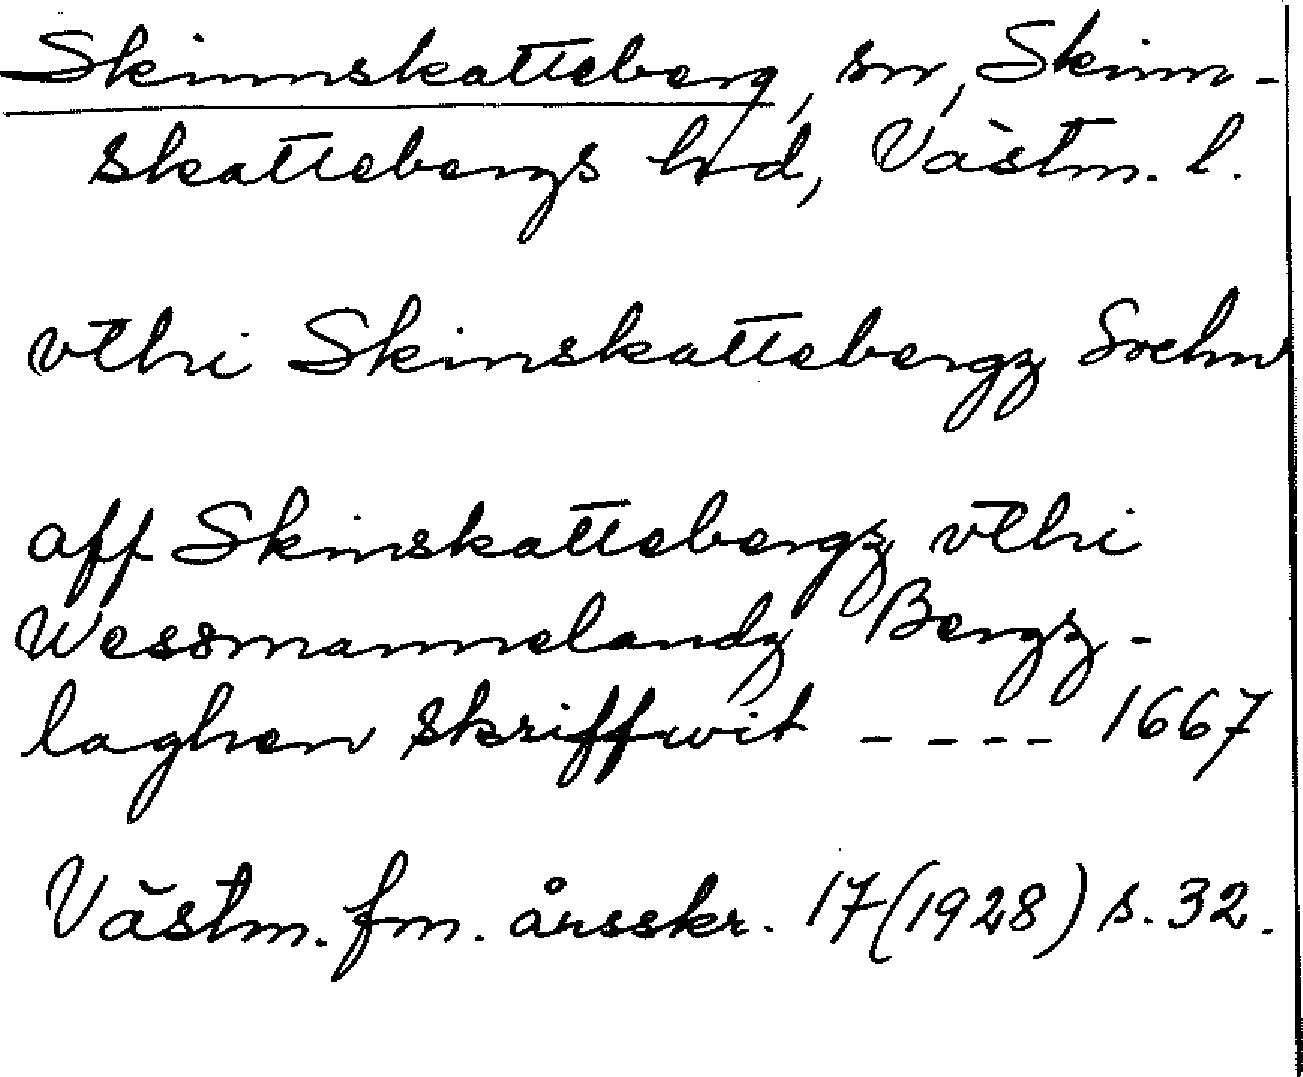 Skinnskatteberg, sn, Skinn-
skattebergs hrd, Västm. l.
vthi Skinskattebergz Sochn
aff Skinskattebergz vthi
Wessmannelandz Bergz-
laghen skriffwit - - - - 1667
Västm. fm. årsskr. 17 (1928) s. 32.